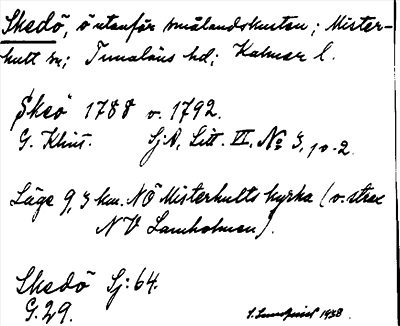 Skedö, ö utanför smålandskusten; Mister-
hult sn; Tunaläns hd; Kalmar l.
Skeö 1788 o. 1792.
G. Klint. SjA, Litt. VI. No 3, 10-2.
Läge 9,3 km. NÖ Misterhults kyrka (o. strax
NV Lamholmen).
Skedö Sj: 64.
G. 29. 1938